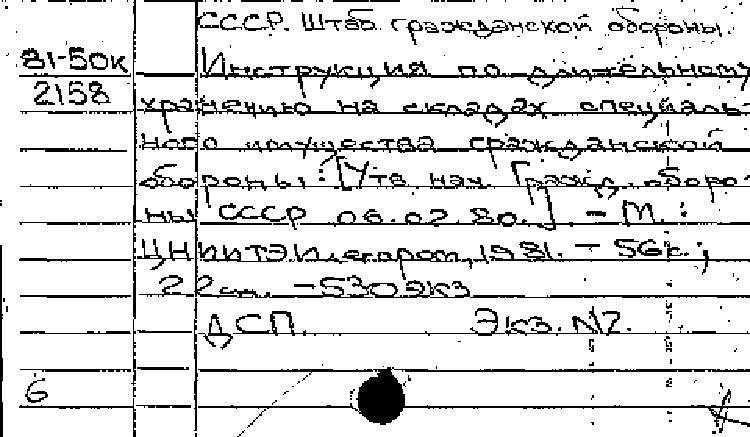 СССР. Штаб гражданской обороны.
81-50к Инструкция по длительному
2158 хранению на складах специаль-
ного имущества гражданской
обороны: [Утв. нач. Гражд. оборо-
ны СССР 06.02.80.] - М.:
ЦНИИТЭИлегпром, 1981. - 56с.;
22см. - 530экз
ДСП. Экз. N2.
6